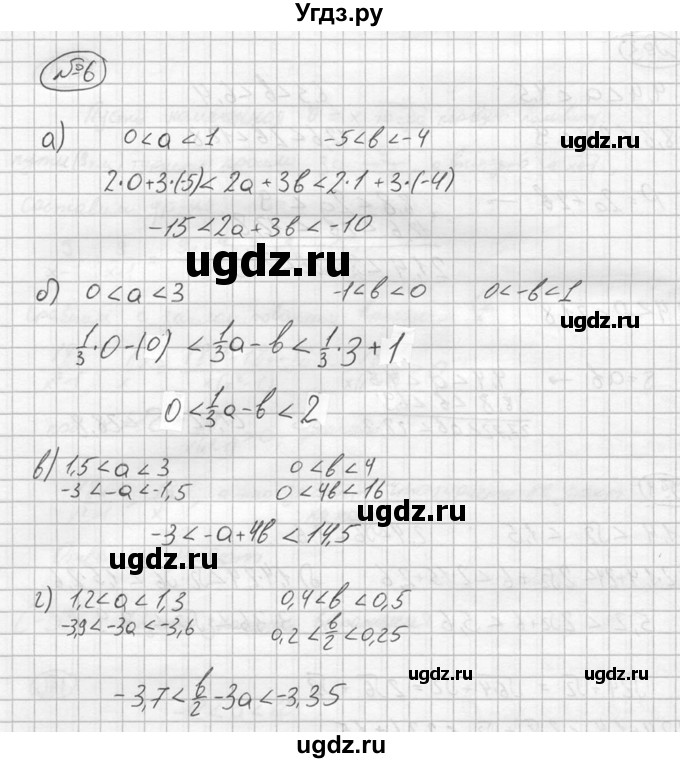 Угдз.ру
№6
а) 0<a<1 -5<b<-4
2·0+3·(-5)<2a+3b<2·1+3·(-4)
-15<2a+3b<-10
б) 0<a<3 -1<b<0 0<-b<1
1/3·0-(0)<1/3a-b<1/3·3+1
0<1/3a-b<2
в) 1,5<a<3 0<b<4
-3<-a<-1,5 0<4b<16
-3<-a+4b<14,5
г) 1,2<a<1,3 0,4<b<0,5
-3,9<-3a<-3,6 0,2<b/2<0,25
-3,7<b/2-3a<-3,35
ugdz.ru
ugdz.ru
ugdz.ru
ugdz.ru
ugdz.ru
ugdz.ru
ugdz.ru
ugdz.ru
ugdz.ru